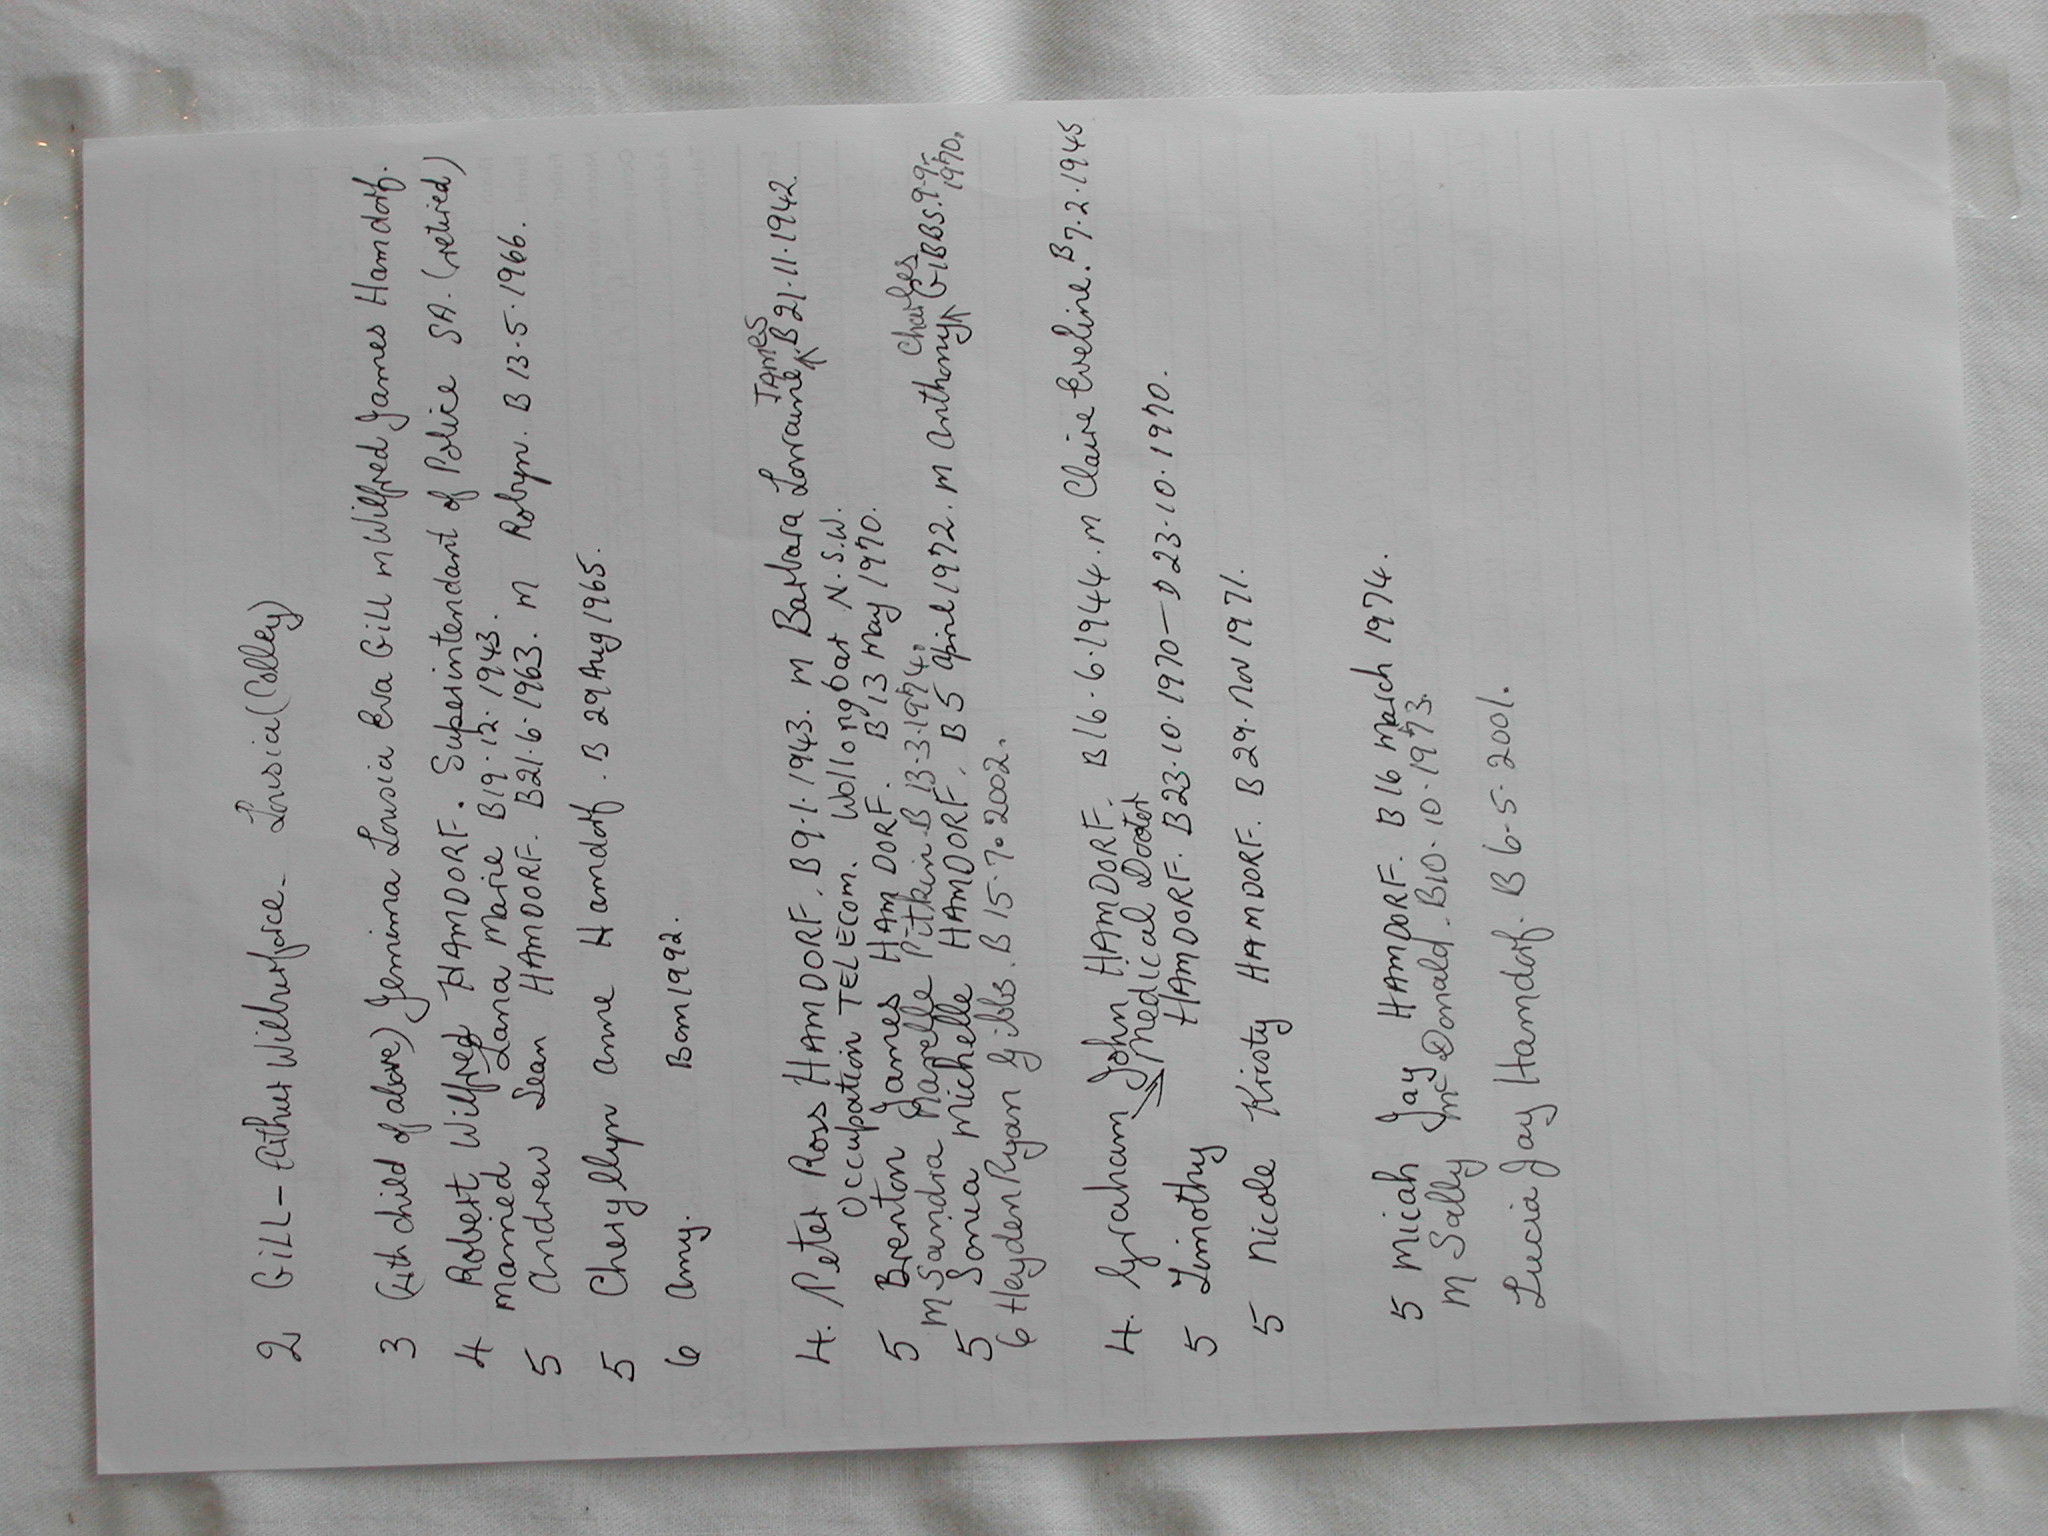 2 GILL - Arthur Wilberforce - Lousia (Colley)
3 (4th child of above) Jemima Lousia Eva Gill m Wilfred James Hamdorf.
4 Robert Wilfred HAMDORF. Superintendant of Police SA. (retired)
married Lana Marie B19.12.1943.
5 Andrew Dean HAMDORF. B21.6.1963. m Robyn. B 13.5.1966.
5 Cheryllyn Anne Hamdorf. B 29 Aug 1965.
6 Amy. Born 1992.
4. Peter Ross HAMDORF. B9.1.1943. m Barbara Lorraine James B 21.11.1942.
Occupation TELECOM. Wollongbar N.S.W.
5 Brenton James HAMDORF. B 13 May 1970.
m Sandra Narelle Pitkin-B 13-3-1974.
5 Sonia Michelle HAMDORF. B 5 April 1972. m Anthony Charles GIBBS. 9-9-1970.
6 Heyden Ryan Gibbs. B 15.7.2002.
4. Graham John HAMDORF. B16.6.1944. m Claire Eveline. B 7.2.1945
Medical Doctor
5 Timothy HAMDORF. B23.10.1970 - D 23.10.1970.
5 Nicole Kristy HAMDORF. B 29. Nov 1971.
5 Micah Jay HAMDORF. B 16 March 1974.
m Sally McDonald. B10.10.1973.
Lucia Jay Hamdorf. B 6-5-2001.